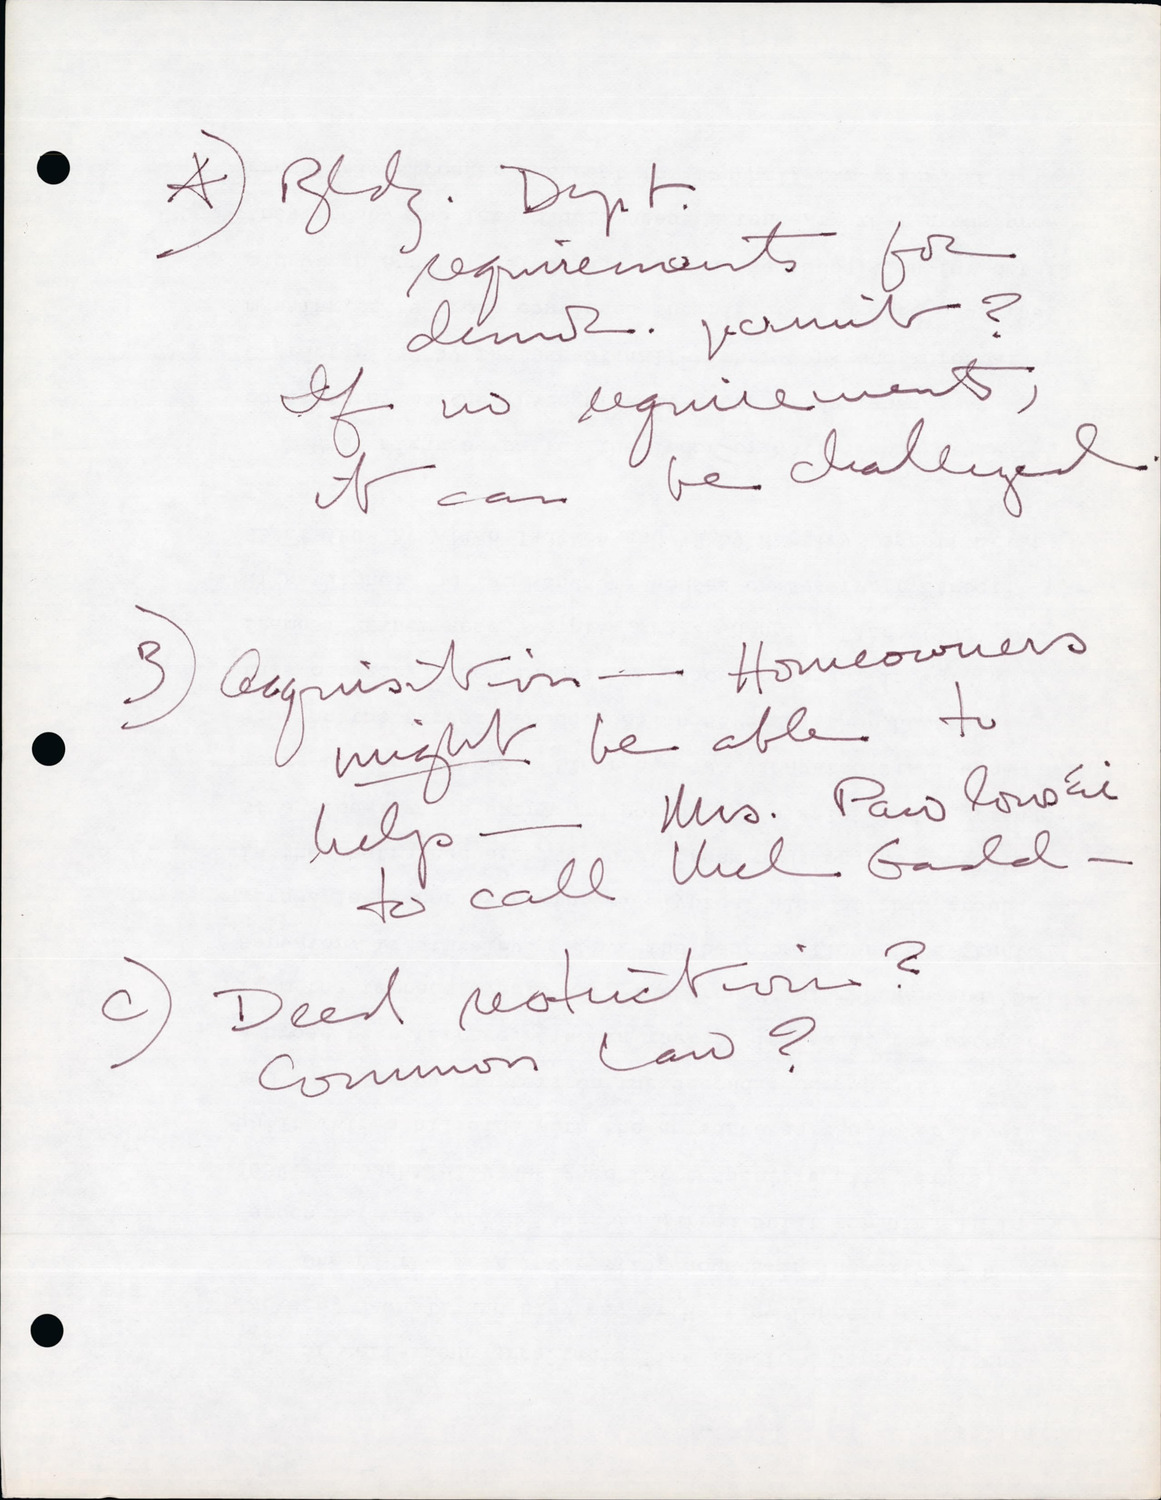 A) Bldg. Dept.
requirements for
demol. permit?
If no requirements,
it can be challenged.
B) Acquisition — Homeowners
might be able to
help — Mrs. Pawlowski
to call Mel Gadd —
C) Deed restriction?
Common Law?